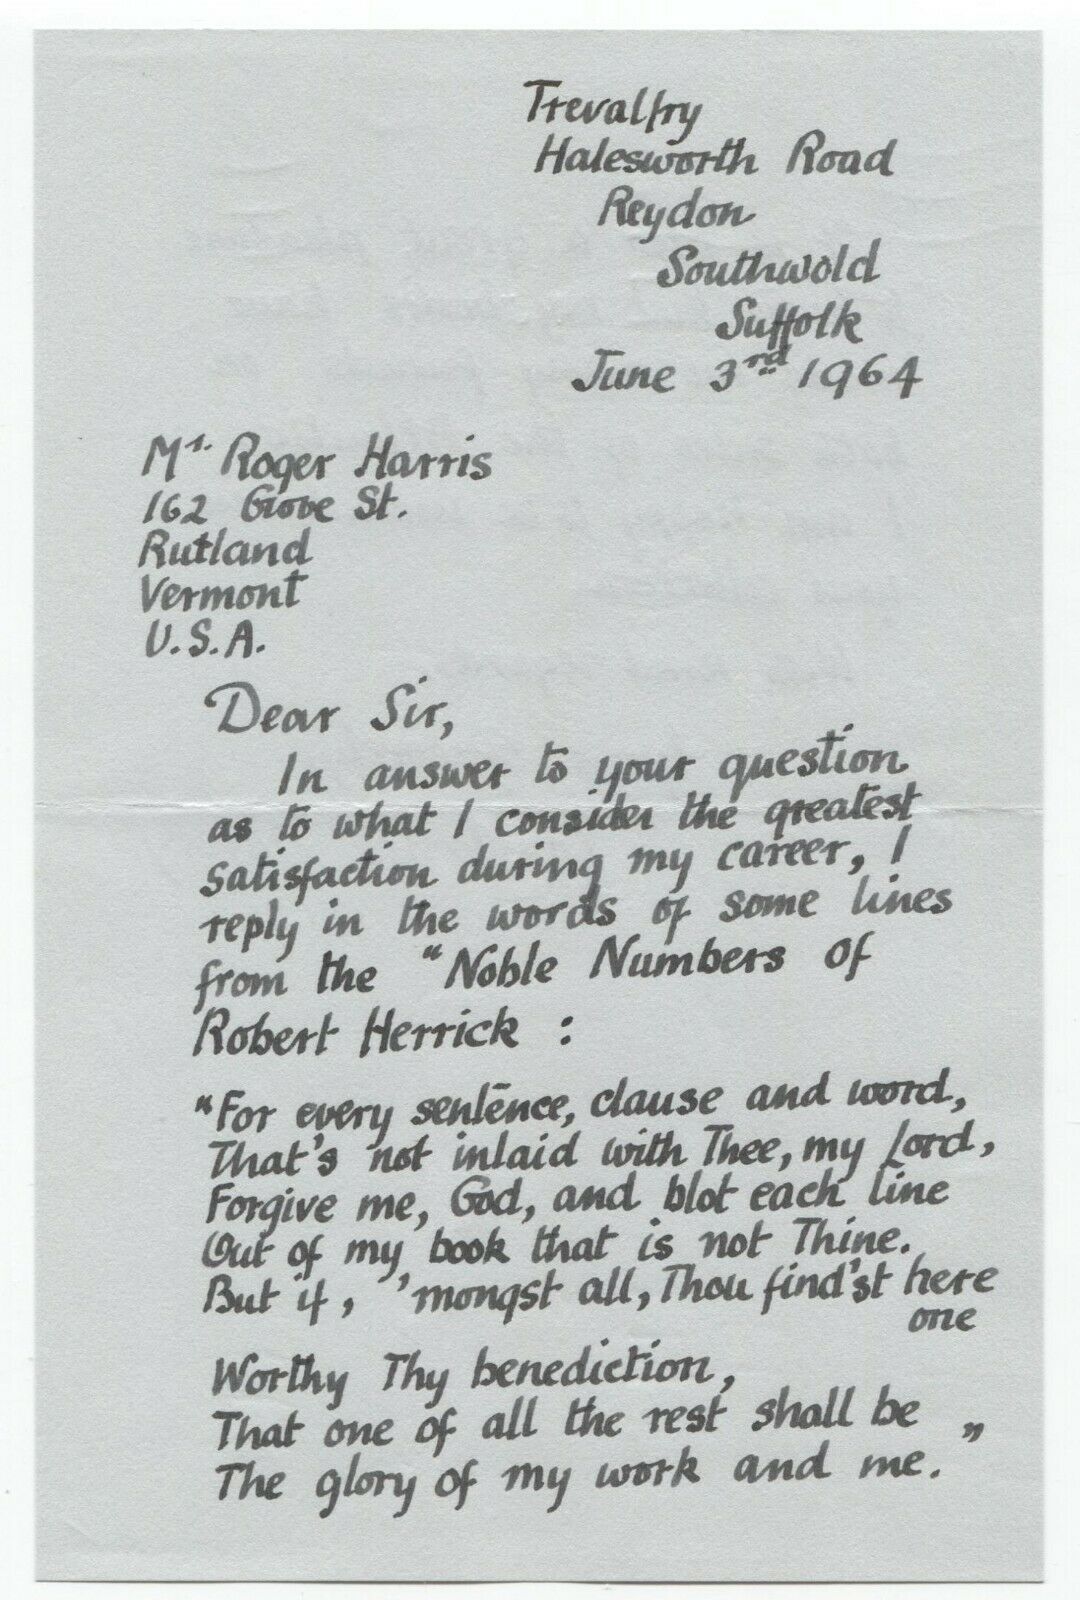 Trevalfry
Halesworth Road
Reydon
Southwold
Suffolk
June 3rd 1964
Mr. Roger Harris
162 Grove St.
Rutland
Vermont
U.S.A.
Dear Sir,
In answer to your question
as to what I consider the greatest
satisfaction during my career, I
reply in the words of some lines
from the "Noble Numbers of
Robert Herrick :
"For every sentence, clause and word,
That's not inlaid with Thee, my Lord,
Forgive me, God, and blot each line
Out of my book that is not Thine.
But if, 'mongst all, Thou find'st here
one
Worthy Thy benediction,
That one of all the rest shall be
The glory of my work and me."